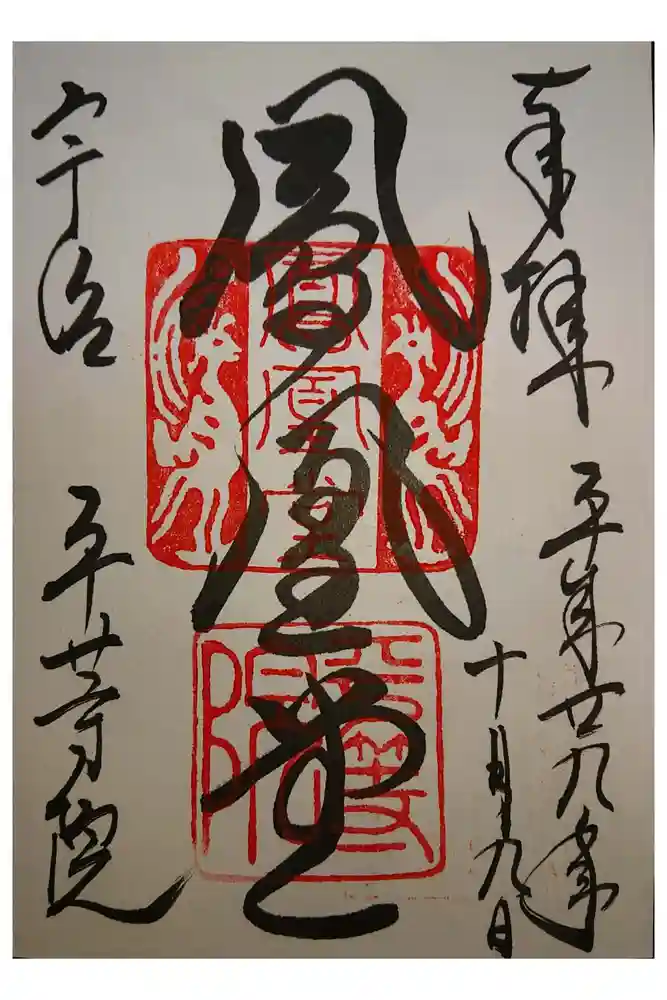 奉拝 平成廿九年
十月九日
鳳凰堂
宇治 平等院
鳳凰堂
平等院